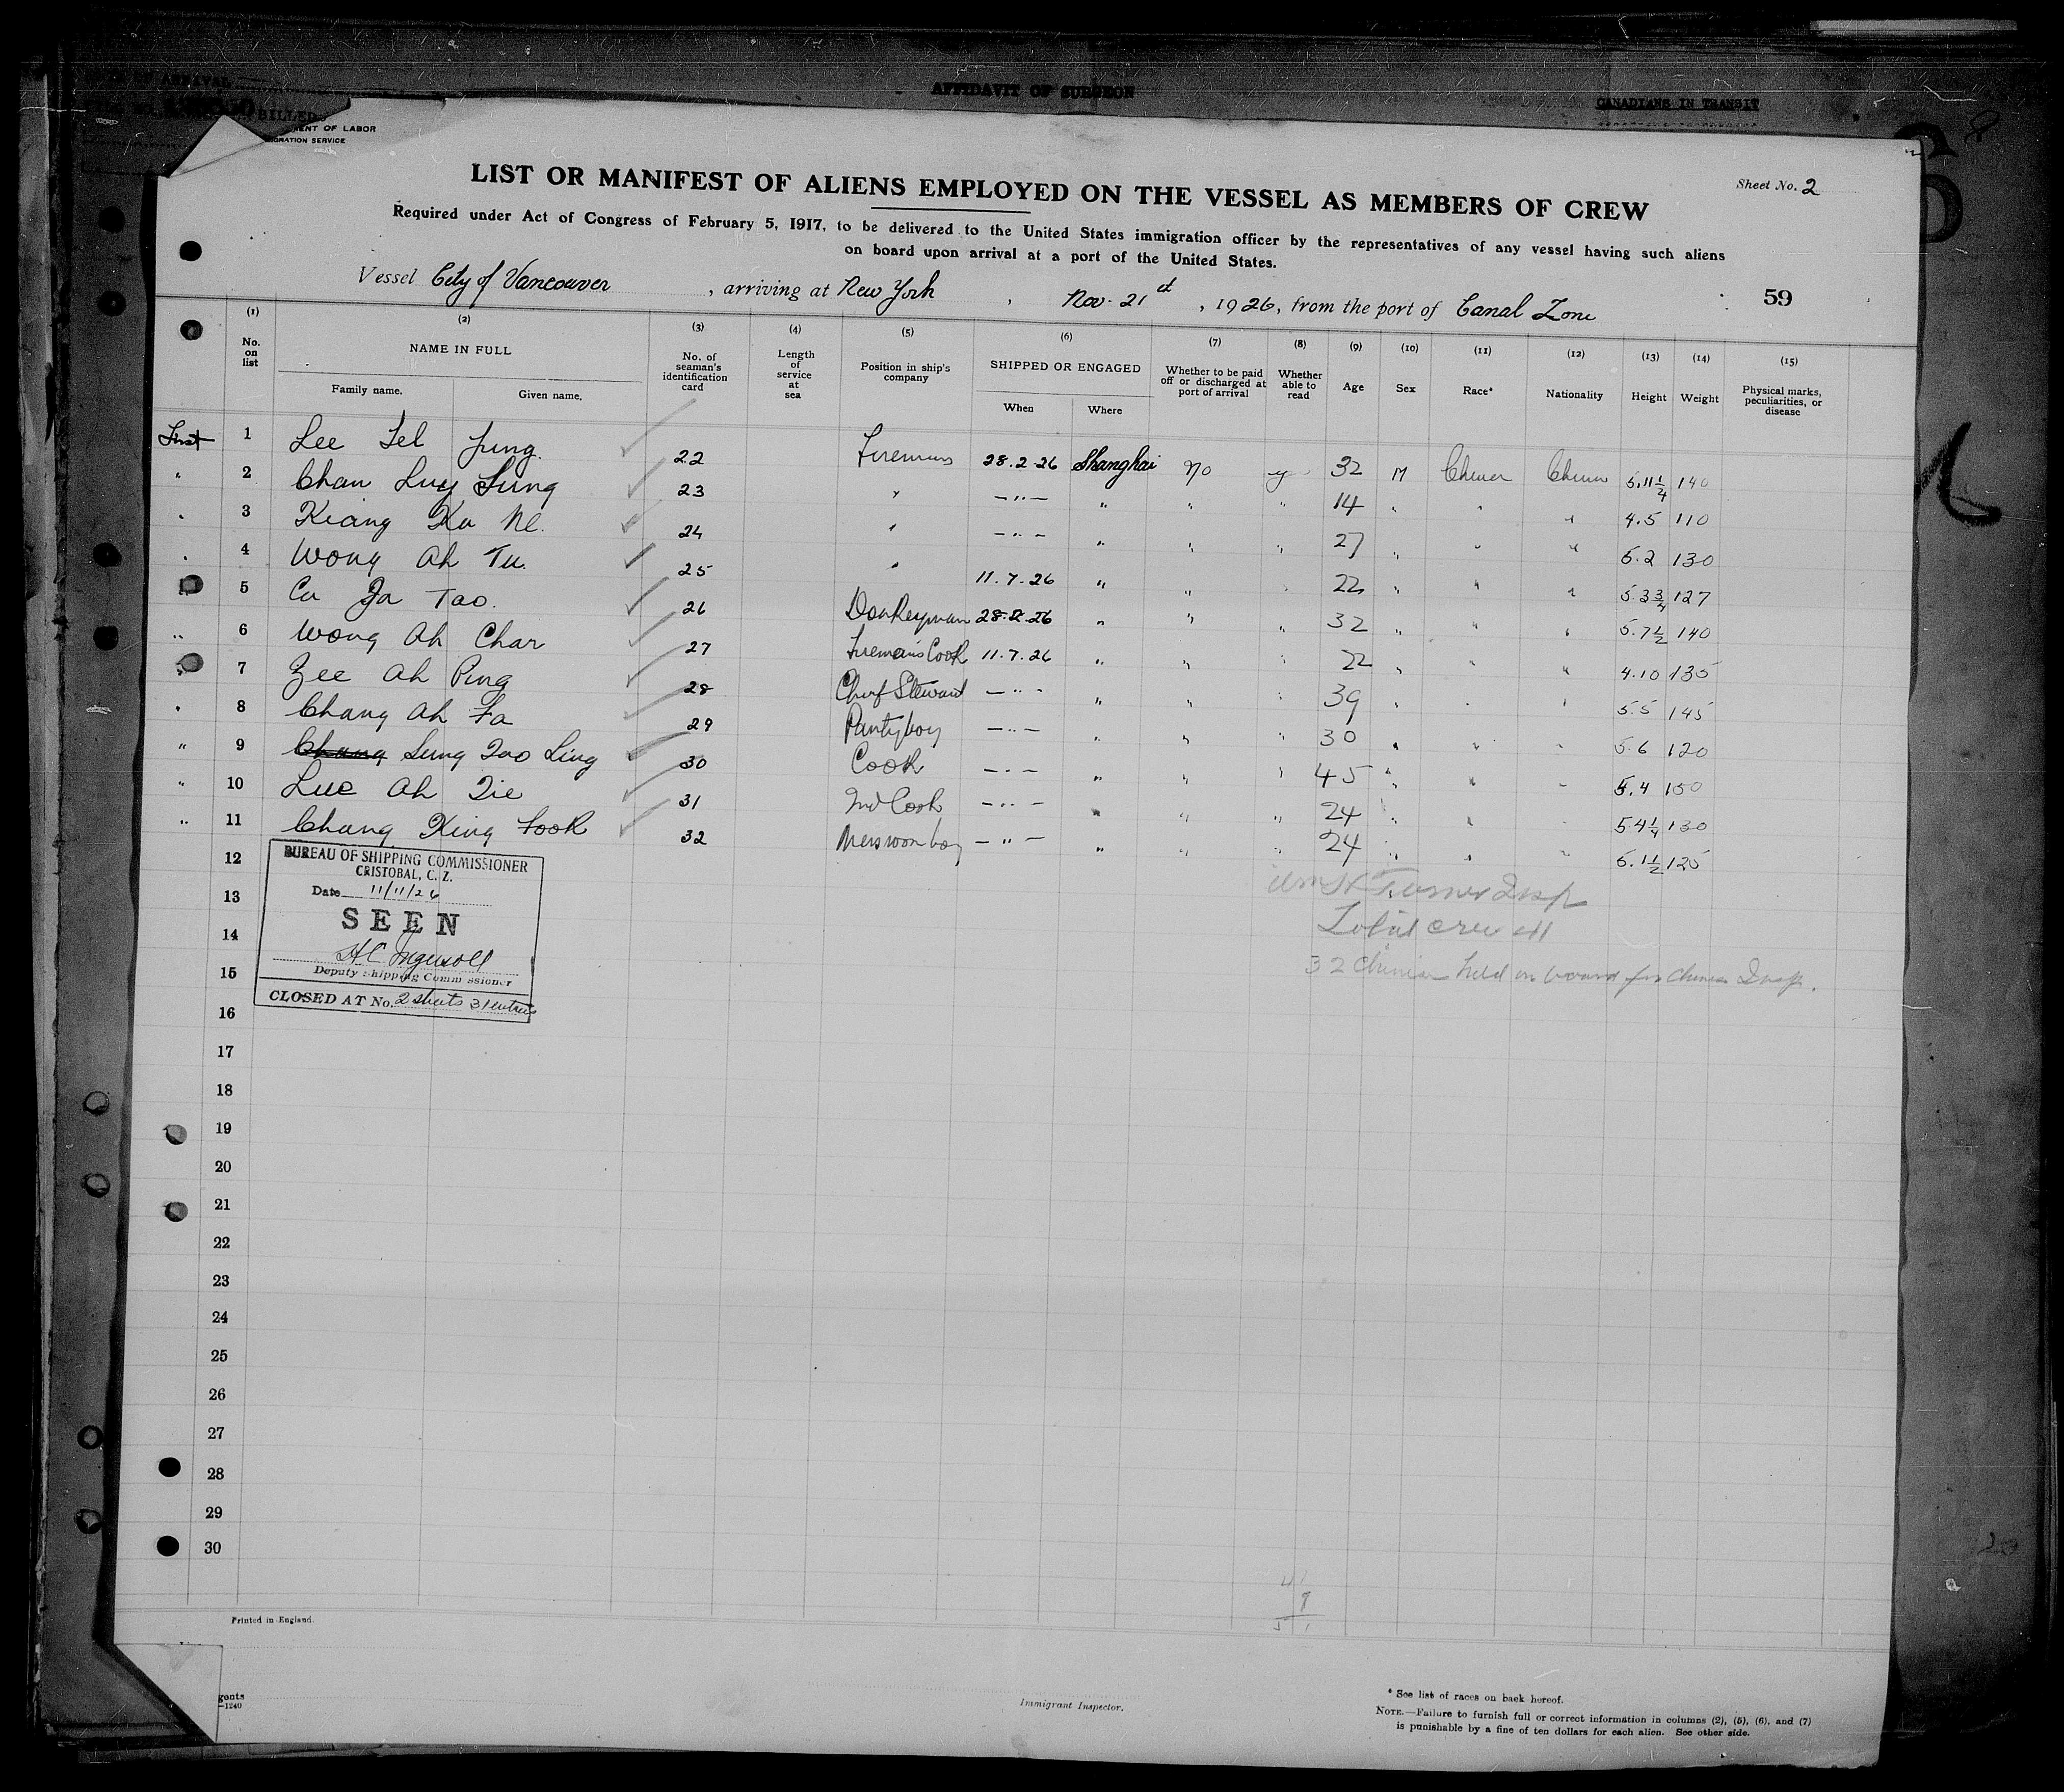 ARRIVAL
AFFIDAVIT OF SURGEON
CANADIANS IN TRANSIT
BILLED
MENT OF LABOR
MIGRATION SERVICE
LIST OR MANIFEST OF ALIENS EMPLOYED ON THE VESSEL AS MEMBERS OF CREW
Sheet No. 2
Required under Act of Congress of February 5, 1917, to be delivered to the United States immigration officer by the representatives of any vessel having such aliens
on board upon arrival at a port of the United States.
Vessel City of Vancouver, arriving at New York, Nov. 21st, 1926, from the port of Canal Zone
59
(1) No. on list (2) NAME IN FULL Family name. Given name. (3) No. of seaman's identification card (4) Length of service at sea (5) Position in ship's company (6) SHIPPED OR ENGAGED When Where (7) Whether to be paid off or discharged at port of arrival (8) Whether able to read (9) Age (10) Sex (11) Race* (12) Nationality (13) Height (14) Weight (15) Physical marks, peculiarities, or disease
First 1 Lee Sel Jung. 22 Firemans 28.2.26 Shanghai no yes 32 M Chinese Chinese 5.11 1/4 140
" 2 Chan Luy Sung 23 " —"— " " " 14 " " " 4.5 110
" 3 Kiang Ka Ne. 24 " —"— " " " 27 " " " 5.2 130
" 4 Wong Ah Tu. 25 " 11.7.26 " " " 22 " " " 5.3 3/4 127
" 5 Cu Ja Tao. 26 Donkeyman 28.2.26 " " " 32 " " " 5.7 1/2 140
" 6 Wong Ah Char 27 Firemans Cook 11.7.26 " " " 22 " " " 4.10 135
" 7 Zee Ah Ping 28 Chief Steward —"— " " " 39 " " " 5.5 145
" 8 Chang Ah Fa 29 Pantryboy —"— " " " 30 " " " 5.6 120
" 9 Chang Sung Zao Ling 30 Cook —"— " " " 45 " " " 5.4 150
" 10 Lue Ah Zie 31 2nd Cook —"— " " " 24 " " " 5 4 1/4 130
" 11 Chang King Fook 32 Messroom boy —"— " " " 24 " " " 5.1 1/2 125
12
BUREAU OF SHIPPING COMMISSIONER
CRISTOBAL, C. Z.
Date 11/11/26
SEEN
H C Ingersoll
Deputy Shipping Commissioner
CLOSED AT No. 2 sheets 31 entries
Wm H Turner Insp
Total crew 41
32 Chinese held on board for Chinese Insp.
13
14
15
16
17
18
19
20
21
22
23
24
25
26
27
28
29
30
41
9
51
Printed in England.
gents
—1240
Immigrant Inspector.
* See list of races on back hereof.
NOTE.—Failure to furnish full or correct information in columns (2), (5), (6), and (7)
is punishable by a fine of ten dollars for each alien. See other side.